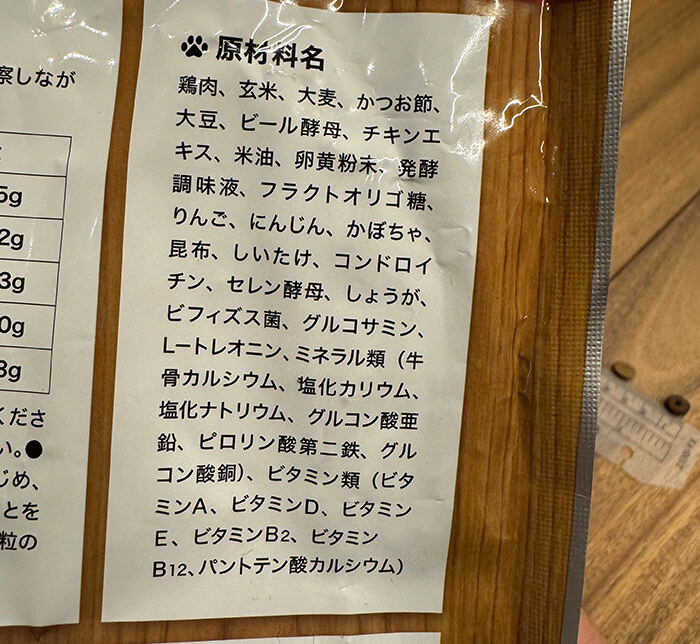 原材料名
鶏肉、玄米、大麦、かつお節、
大豆、ビール酵母、チキンエ
キス、米油、卵黄粉末、発酵
調味液、フラクトオリゴ糖、
りんご、にんじん、かぼちゃ、
昆布、しいたけ、コンドロイ
チン、セレン酵母、しょうが、
ビフィズス菌、グルコサミン、
L-トレオニン、ミネラル類（牛
骨カルシウム、塩化カリウム、
塩化ナトリウム、グルコン酸亜
鉛、ピロリン酸第二鉄、グル
コン酸銅）、ビタミン類（ビタ
ミンA、ビタミンD、ビタミン
E、ビタミンB2、ビタミン
B12、パントテン酸カルシウム）
察しなが
5g
2g
3g
0g
3g
くださ
い。●
じめ、
とを
粒の